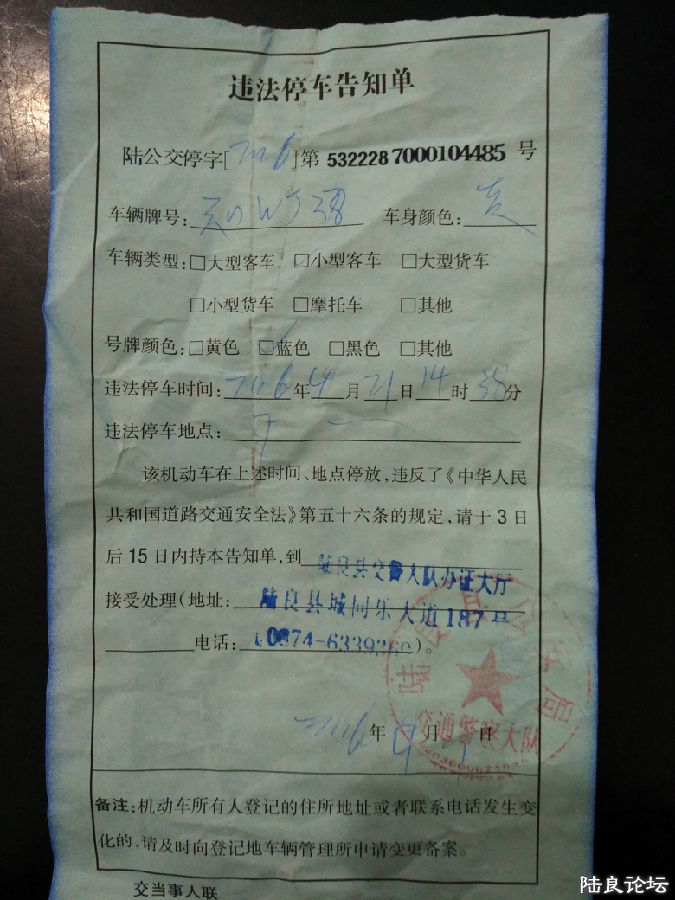 违法停车告知单
陆公交停字[2016]第5322287000104485号
车辆牌号： 车身颜色：
车辆类型：□大型客车 □小型客车 □大型货车
□小型货车 □摩托车 □其他
号牌颜色：□黄色 □蓝色 □黑色 □其他
违法停车时间：2016年4月21日14时38分
违法停车地点：
该机动车在上述时间、地点停放，违反了《中华人民
共和国道路交通安全法》第五十六条的规定，请于3日
后15日内持本告知单，到陆良县交警大队办证大厅
接受处理（地址：陆良县城同乐大道187号
电话：0874-6339360）。
2016年4月21日
陆良县公安局
交通警察大队
备注：机动车所有人登记的住所地址或者联系电话发生变
化的，请及时向登记地车辆管理所申请变更备案。
交当事人联
陆良论坛